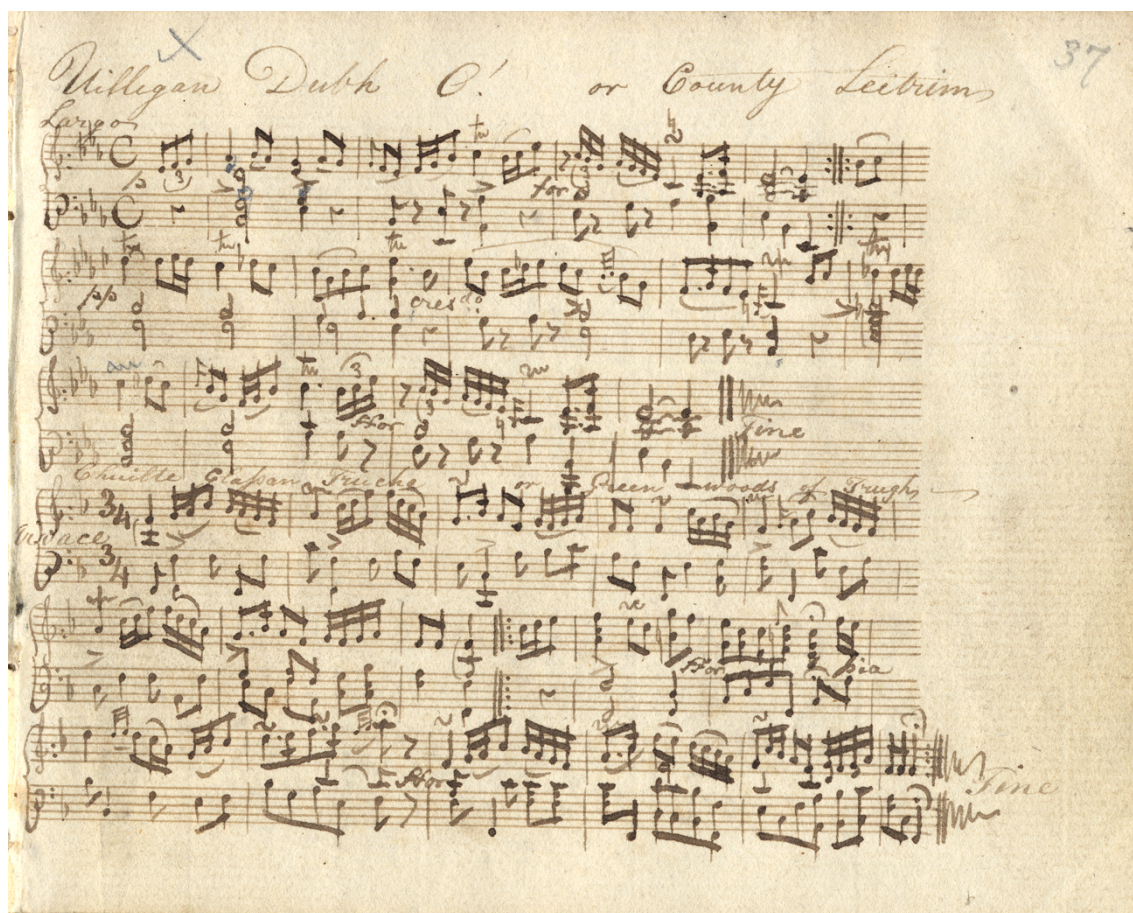 X 37
Uilligan Dubh O! or County Leitrim
Largo
p 3 tr for
tr tr tr
pp cresdo
tr 3
ffor
Fine
Chuilte Glassan Trucha or Green-woods of Trugh
3/4
Vivace
3/4
ffor pia
ffor Fine